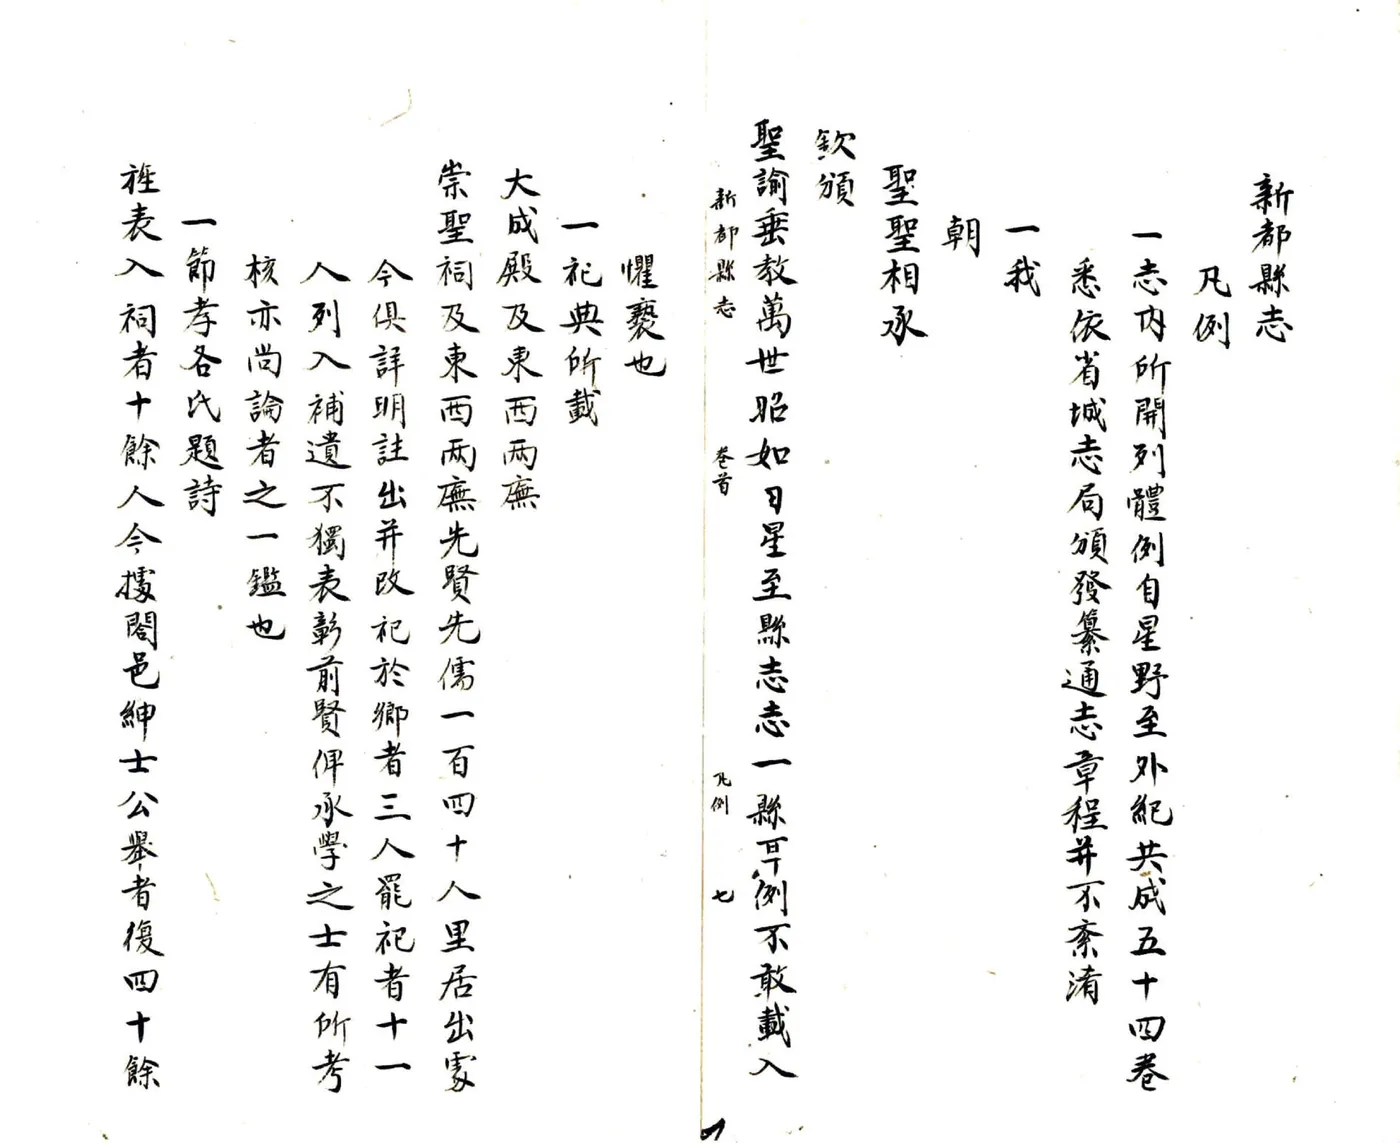 新都縣志
凡例
一志内所開列體例自星野至外紀共成五十四卷
悉依省城志局頒發纂通志章程并不紊淆
一我
朝
聖聖相承
欽頒
聖諭垂教萬世昭如日星至縣志志一縣耳例不敢載入
新都縣志 卷首 凡例 七
懼褻也
一祀典所載
大成殿及東西兩廡
崇聖祠及東西兩廡先賢先儒一百四十人里居出處
今俱詳明註出并改祀於鄉者三人罷祀者十一
人列入補遺不獨表彰前賢俾承學之士有所考
核亦尚論者之一鑑也
一節孝各氏題請
旌表入祠者十餘人今據閤邑紳士公舉者復四十餘